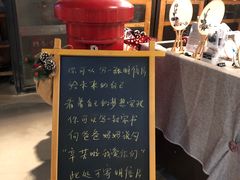 你可以写一张明信片
给未来的自己
看着自己的梦想实现
你可以写一张贺卡
向爸爸妈妈说句
"辛苦啦 我爱你们"
此处可寄明信片